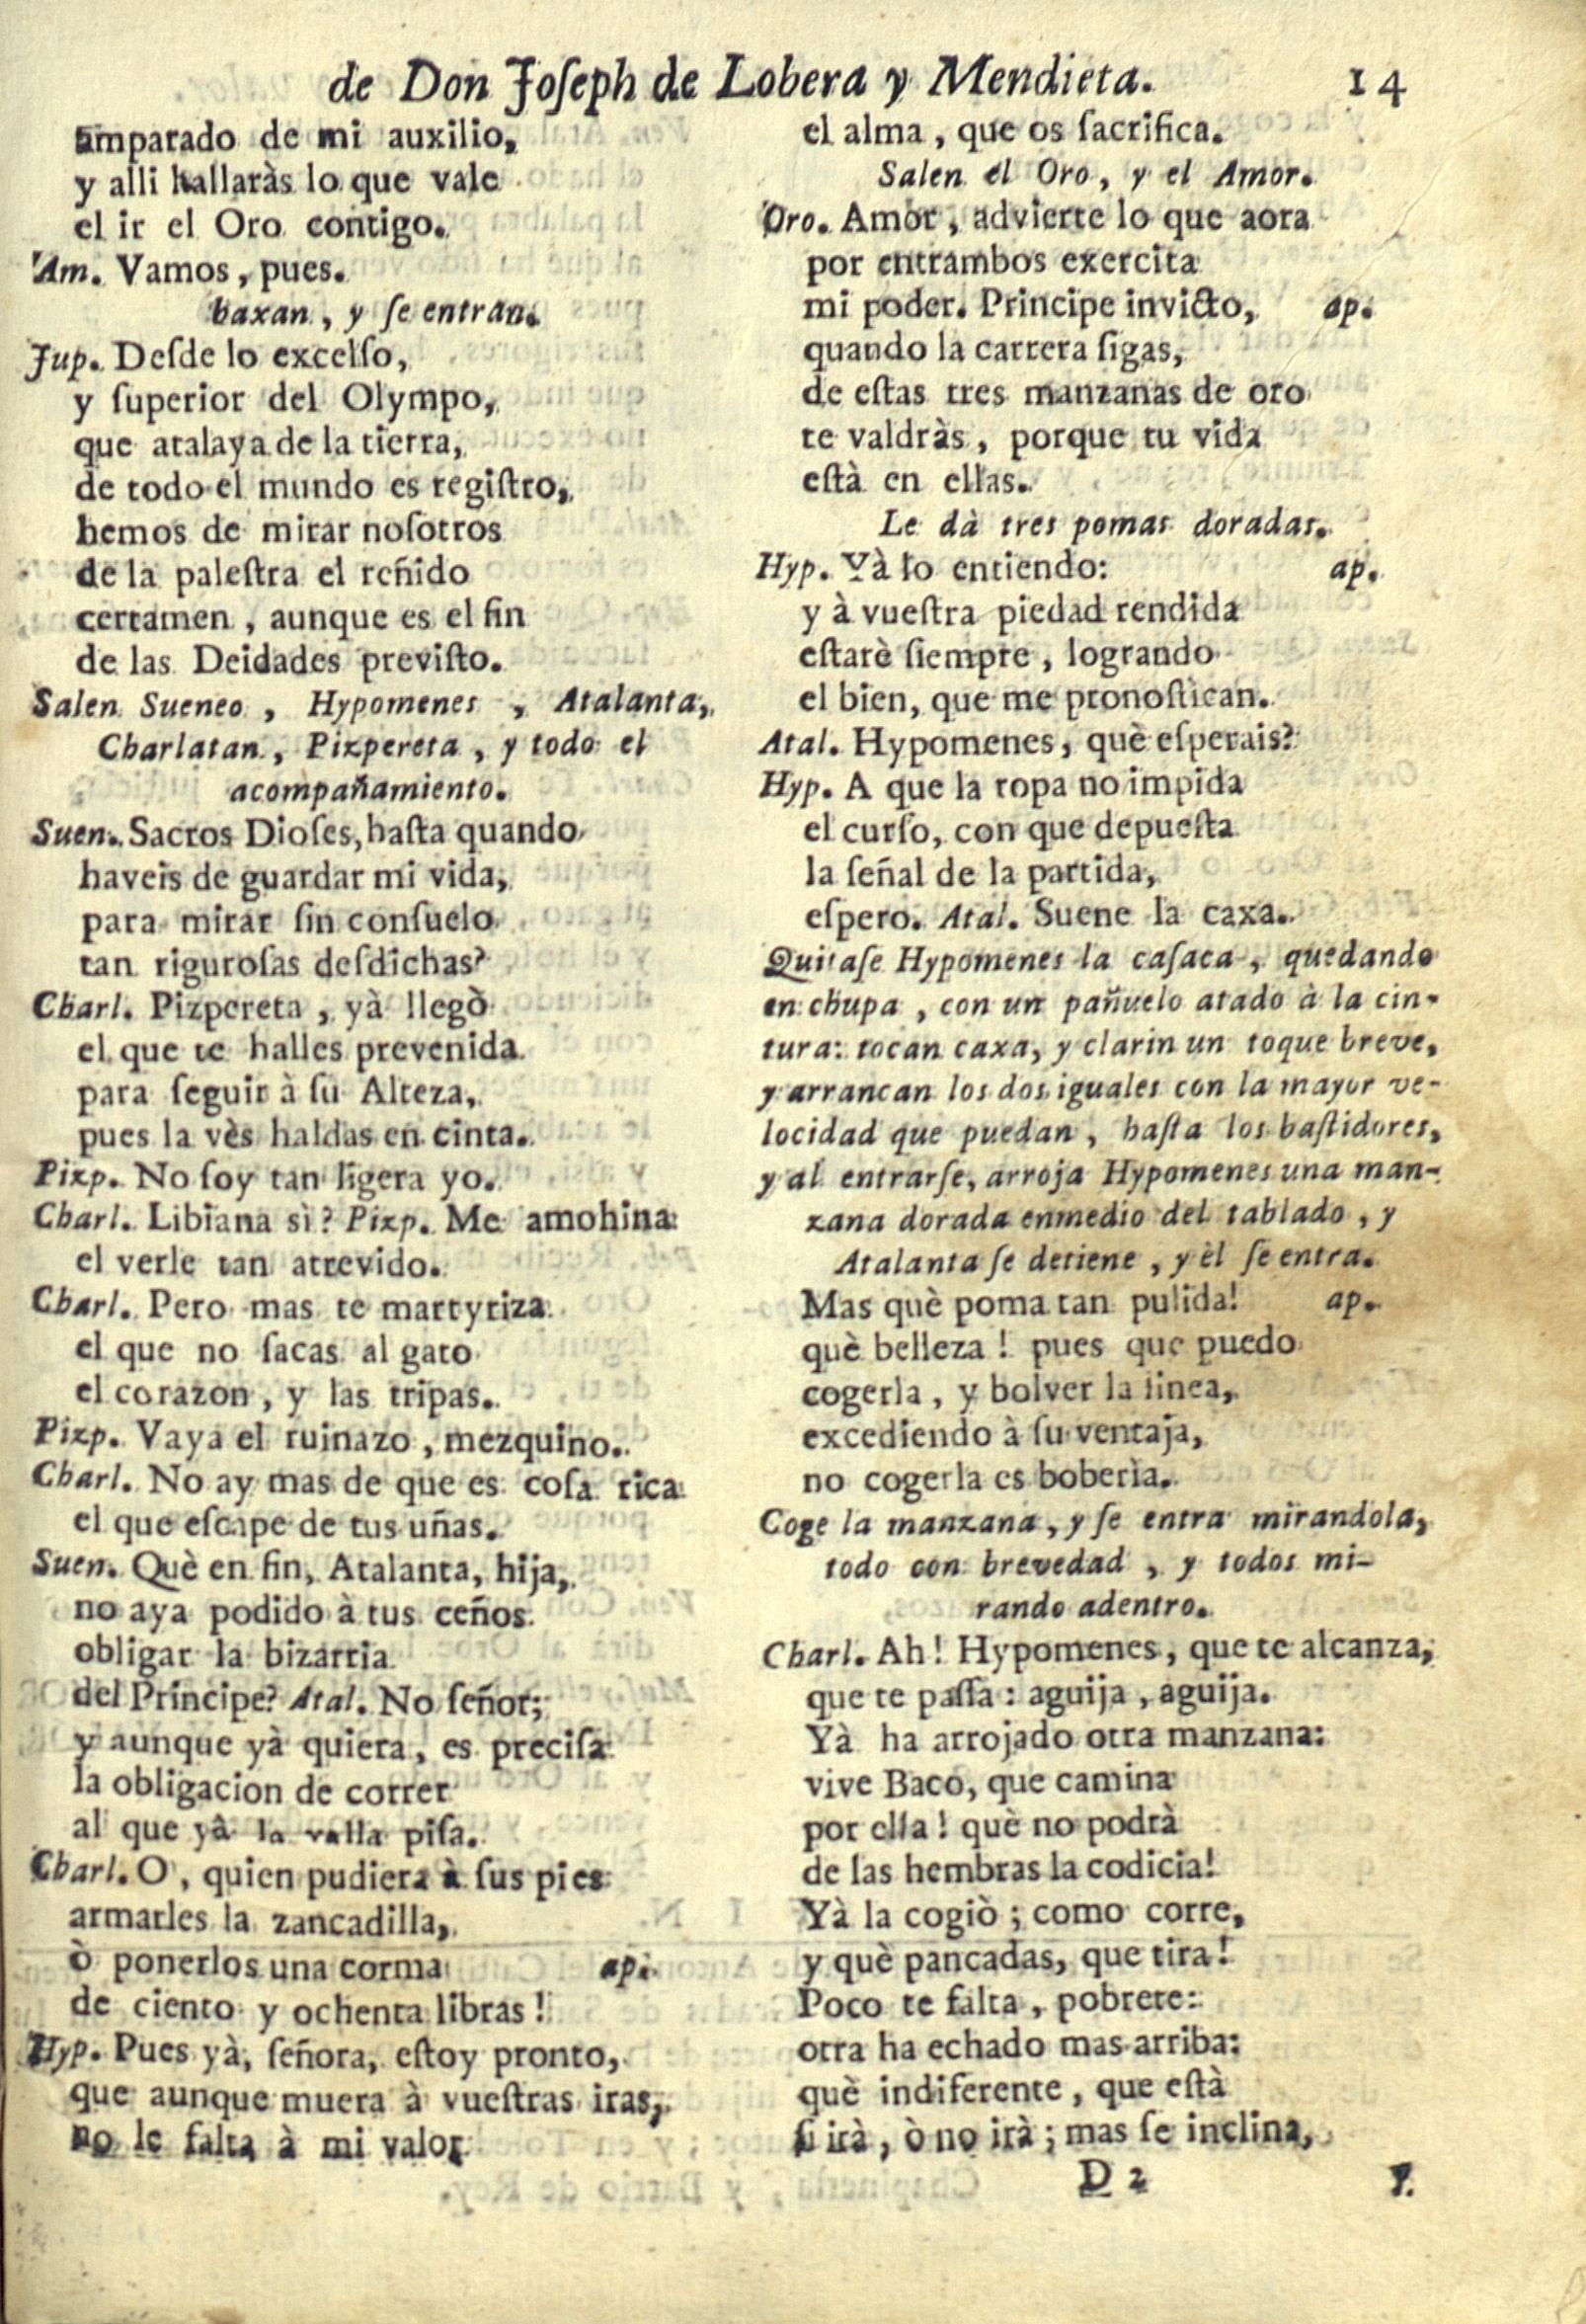 de Don Joſeph de Lobera y Mendieta. 14
amparado de mi auxilio,
y alli hallaràs lo que vale
el ir el Oro contigo.
Am. Vamos, pues.
baxan, y ſe entran.
Jup. Deſde lo excelſo,
y ſuperior del Olympo,
que atalaya de la tierra,
de todo el mundo es regiſtro,
hemos de mirar noſotros
de la paleſtra el reñido
certamen, aunque es el fin
de las Deidades previſto.
Salen Sueneo, Hypomenes, Atalanta,
Charlatan, Pizpereta, y todo el
acompañamiento.
Suen. Sacros Dioſes, haſta quando
haveis de guardar mi vida,
para mirar ſin conſuelo
tan riguroſas deſdichas?
Charl. Pizpereta, yà llegò
el que te halles prevenida
para ſeguir à ſu Alteza,
pues la vès haldas en cinta.
Pizp. No ſoy tan ligera yo.
Charl. Libiana sì? Pizp. Me amohina
el verle tan atrevido.
Charl. Pero mas te martyriza
el que no ſacas al gato
el corazon, y las tripas.
Pizp. Vaya el ruinazo, mezquino.
Charl. No ay mas de que es coſa rica
el que eſcape de tus uñas.
Suen. Què en fin, Atalanta, hija,
no aya podido à tus ceños
obligar la bizarria
del Principe? Atal. No ſeñor;
y aunque yà quiera, es preciſa
la obligacion de correr
al que yà la valla piſa.
Charl. O, quien pudiera à ſus pies
armarles la zancadilla,
ò ponerlos una corma ap.
de ciento y ochenta libras!
Hyp. Pues yà, ſeñora, eſtoy pronto,
que aunque muera à vueſtras iras,
no le falta à mi valor
el alma, que os ſacrifica.
Salen el Oro, y el Amor.
Oro. Amor, advierte lo que aora
por entrambos exercita
mi poder. Principe invicto, ap.
quando la carrera ſigas,
de eſtas tres manzanas de oro
te valdràs, porque tu vida
eſtà en ellas.
Le dà tres pomas doradas.
Hyp. Yà lo entiendo: ap.
y à vueſtra piedad rendida
eſtarè ſiempre, logrando
el bien, que me pronoſtican.
Atal. Hypomenes, què eſperais?
Hyp. A que la ropa no impida
el curſo, con que depueſta
la ſeñal de la partida,
eſpero. Atal. Suene la caxa.
Quitaſe Hypomenes la caſaca, quedando
en chupa, con un pañuelo atado à la cin-
tura: tocan caxa, y clarin un toque breve,
y arrancan los dos iguales con la mayor ve-
locidad que puedan, haſta los baſtidores,
y al entrarſe, arroja Hypomenes una man-
zana dorada enmedio del tablado, y
Atalanta ſe detiene, y èl ſe entra.
Mas què poma tan pulida! ap.
què belleza! pues que puedo
cogerla, y bolver la linea,
excediendo à ſu ventaja,
no cogerla es boberìa.
Coge la manzana, y ſe entra mirandola,
todo con brevedad, y todos mi-
rando adentro.
Charl. Ah! Hypomenes, que te alcanza,
que te paſſa: aguija, aguija.
Yà ha arrojado otra manzana:
vive Baco, que camina
por ella! què no podrà
de las hembras la codicia!
Yà la cogiò; como corre,
y què pancadas, que tira!
Poco te falta, pobrete:
otra ha echado mas arriba:
què indiferente, que eſtà
ſi irà, ò no irà; mas ſe inclina,
D 2 y.